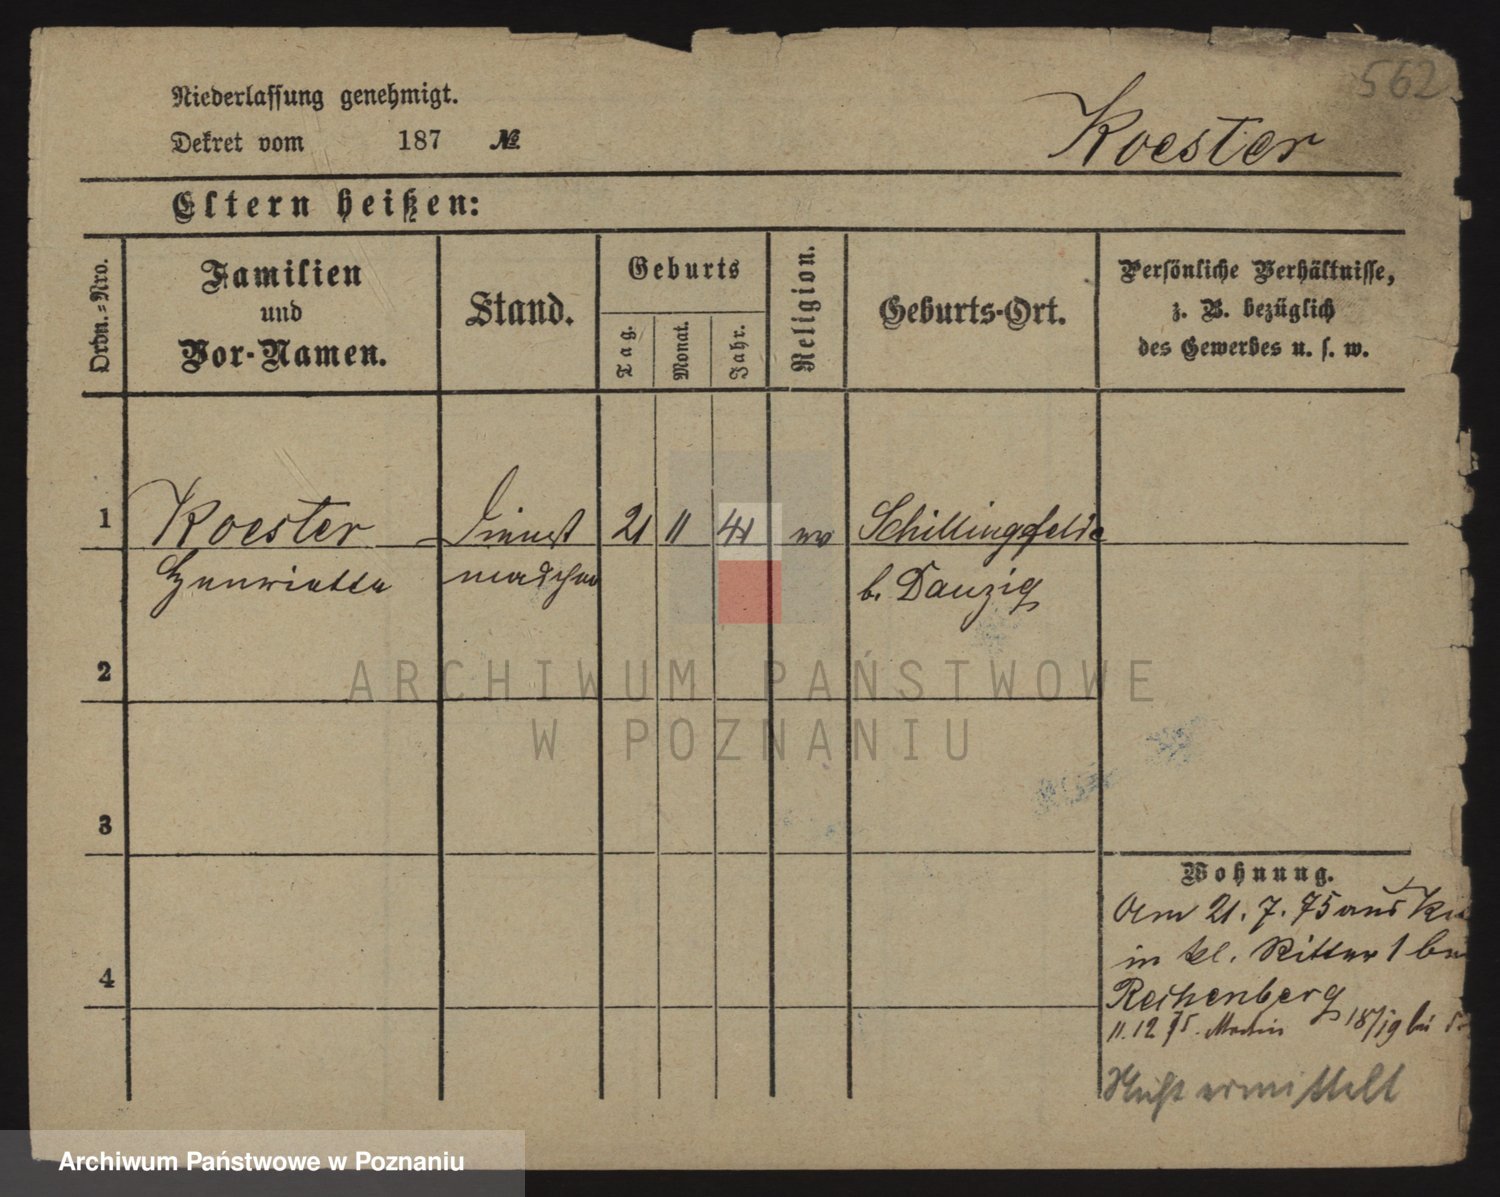 562
Niederlassung genehmigt.
Dekret vom 187 №
Koester
Eltern heißen:
Ordn.-Nro.
Familien
und
Vor-Namen.
Stand.
Geburts
Tag.
Monat.
Jahr.
Religion.
Geburts-Ort.
Persönliche Verhältnisse,
z. B. bezüglich
des Gewerbes u. s. w.
1 Koester Dienst 21 11 41 ev Schillingsfelde
Henriette mädchen b. Danzig
2
ARCHIWUM PAŃSTWOWE
W POZNANIU
3
Wohnung.
Am 21. 7. 75 aus
in kl. Ritter 1 bei
4
Reichenberg
11. 12 75. Martin 18/19 bei
Nicht ermittelt
Archiwum Państwowe w Poznaniu